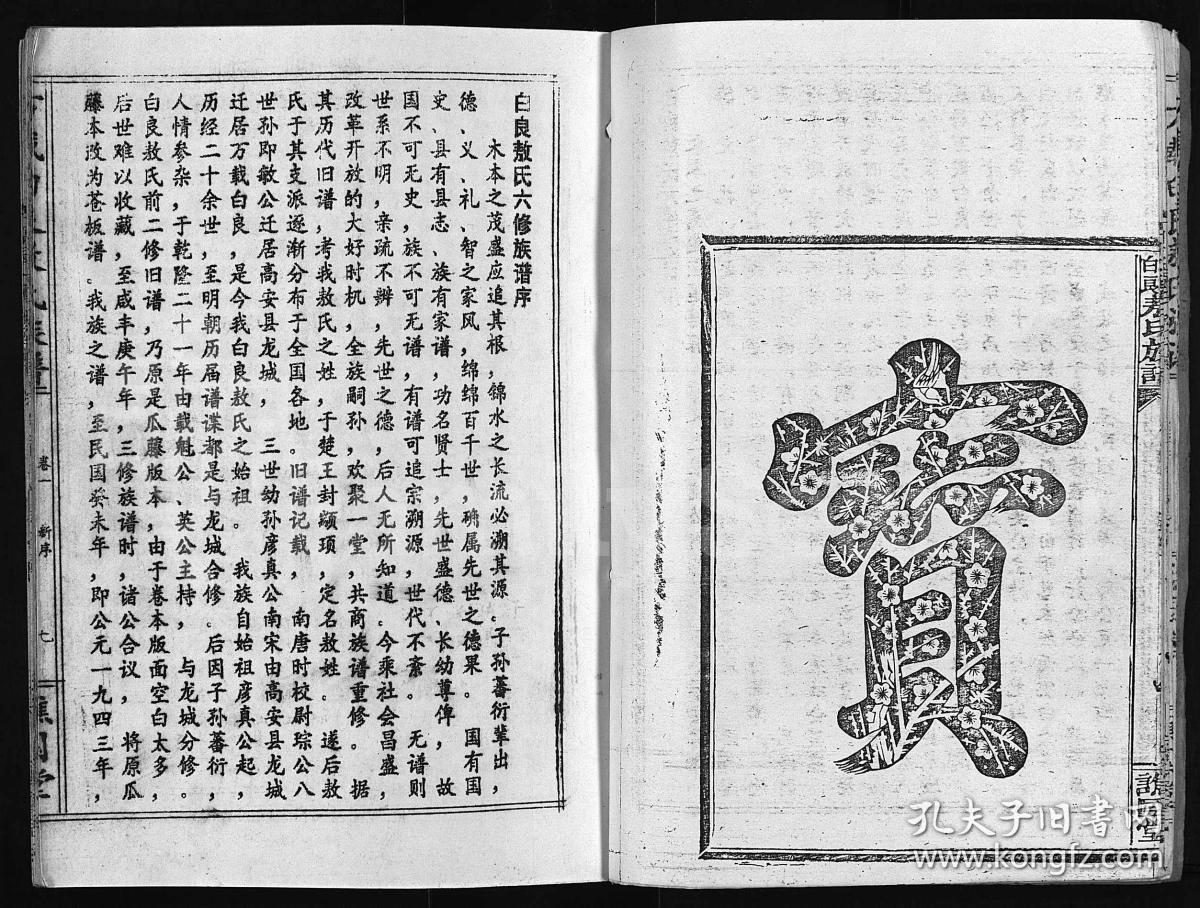 白良敖氏六修族谱序
木本之茂盛应追其根，锦水之长流必溯其源。子孙蕃衍辈出，
德、义、礼、智之家风，绵绵百千世，确属先世之德果。 国有国
史、县有县志、族有家谱，功名贤士，先世盛德、长幼尊俾， 故
国不可无史，族不可无谱，有谱可追宗溯源，世代不紊。 无谱则
世系不明，亲疏不辨，先世之德，后人无所知道。今乘社会昌盛，
改革开放的大好时机，全族嗣孙，欢聚一堂，共商族谱重修。 据
其历代旧谱，考我敖氏之姓，于楚王封颛顼，定名敖姓。 遂后敖
氏于其支派逐渐分布于全国各地。旧谱记载， 南唐时校尉琮公八
世孙即敏公迁居高安县龙城， 三世幼孙彦真公南宋由高安县龙城
迁居万载白良，是今我白良敖氏之始祖。 我族自始祖彦真公起，
历经二十余世，至明朝历届谱谍都是与龙城合修。后因子孙蕃衍，
人情参杂，于乾隆二十一年由载魁公、英公主持， 与龙城分修。
白良敖氏前二修旧谱，乃原是瓜藤版本，由于卷本版面空白太多，
后世难以收藏，至咸丰庚午年，三修族谱时，诸公合议， 将原瓜
藤本改为苍板谱。我族之谱，至民国癸未年，即公元一九四三年，
卷一
新序
七
白良敖氏族谱
宝
孔夫子旧书网